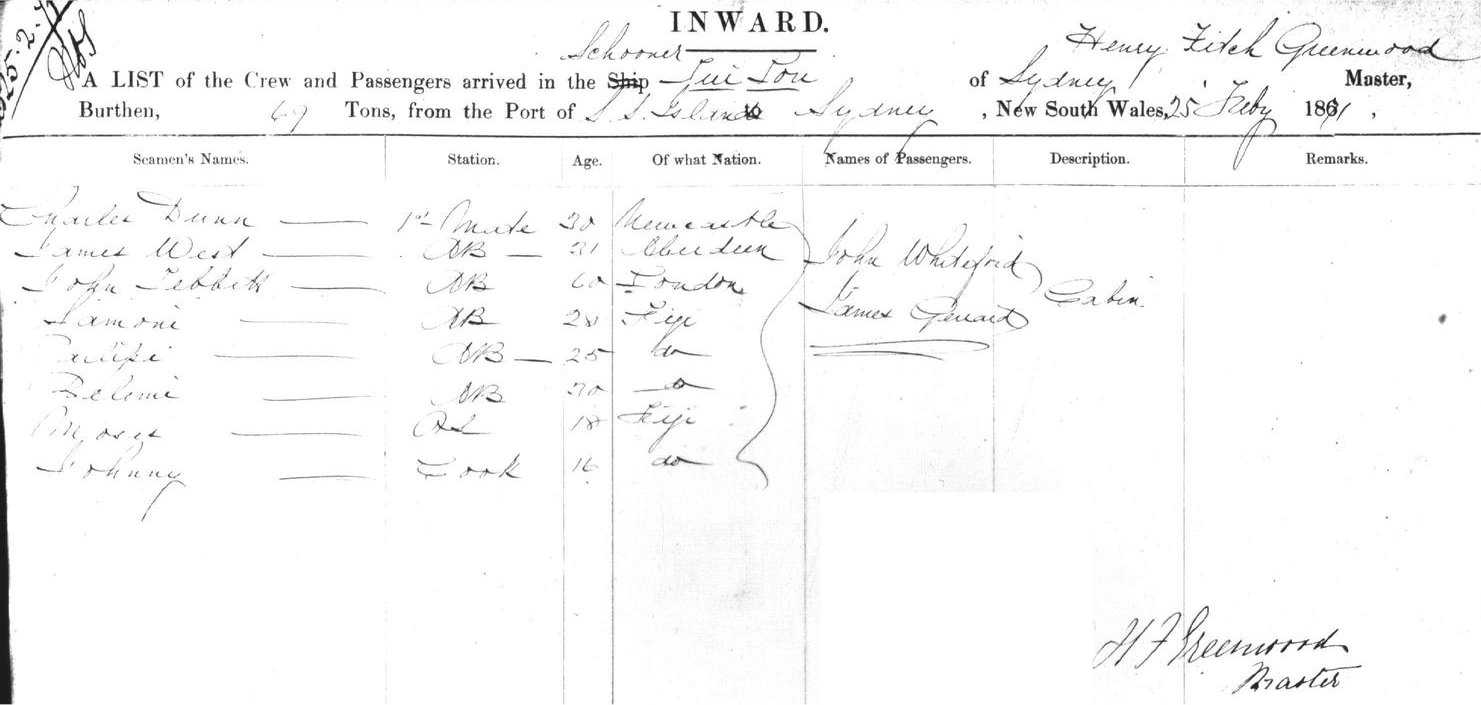 INWARD.
Schooner Henry Fitch Greenwood
A LIST of the Crew and Passengers arrived in the Ship Tui Tou of Sydney Master,
Burthen, 69 Tons, from the Port of S S Islands to Sydney, New South Wales, 25 Feby 1871,
Seamen's Names. Station. Age. Of what Nation. Names of Passengers. Description. Remarks.
Charles Dunn 1st Mate 30 Newcastle
James West AB 21 Aberdeen John Whiteford
John Tebbett AB 60 London Cabin
Samoni AB 28 Fiji James
AB 25 do
AB 30 do
Moses OS 18 Fiji
Johnny Cook 16 do
H F Greenwood
Master